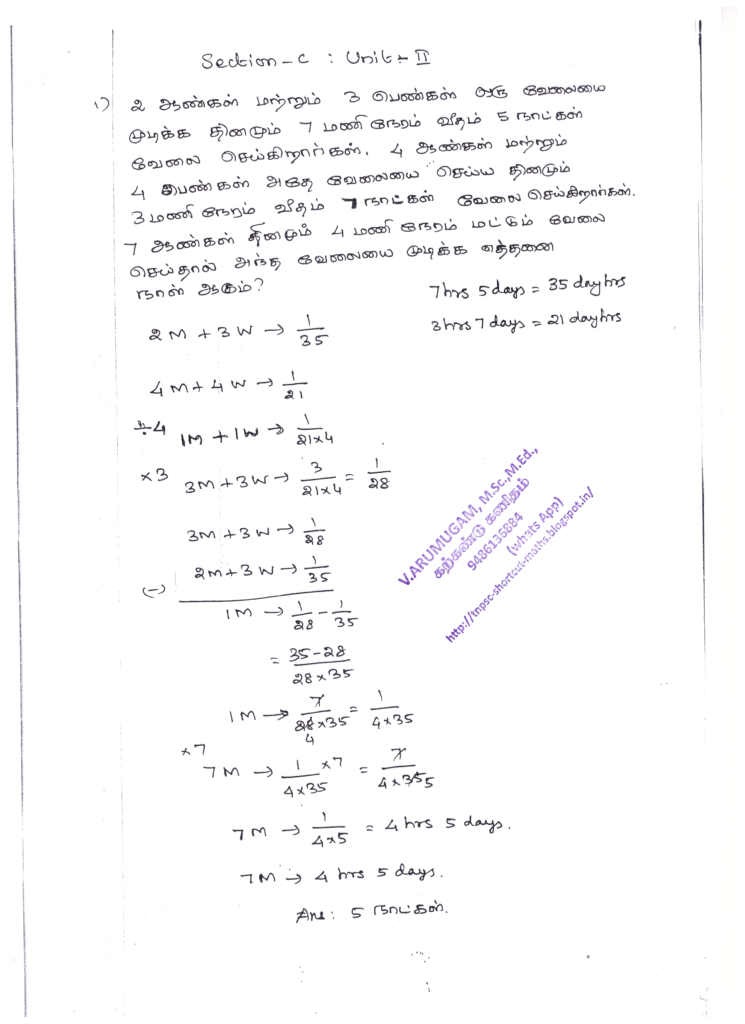 Section - C : Unit - II
1) 2 ஆண்கள் மற்றும் 3 பெண்கள் ஒரு வேலையை
முடிக்க தினமும் 7 மணி நேரம் வீதம் 5 நாட்கள்
வேலை செய்கிறார்கள். 4 ஆண்கள் மற்றும்
4 பெண்கள் அதே வேலையை செய்ய தினமும்
3 மணி நேரம் வீதம் 7 நாட்கள் வேலை செய்கிறார்கள்.
7 ஆண்கள் தினமும் 4 மணி நேரம் மட்டும் வேலை
செய்தால் அந்த வேலையை முடிக்க எத்தனை
நாள் ஆகும்?
7hrs 5 days = 35 day hrs
3 hrs 7 days = 21 day hrs
2M + 3W → 1/35
4M + 4W → 1/21
÷4 1M + 1W → 1/21x4
x3 3M + 3W → 3/21x4 = 1/28
3M + 3W → 1/28
(-) 2M + 3W → 1/35
1M → 1/28 - 1/35
= 35-28/28x35
1M → 7/28x35 = 1/4x35
4
x7 7M → 1/4x35 x7 = 7/4x35 5
7M → 1/4x5 = 4 hrs 5 days.
7M → 4 hrs 5 days.
Ans : 5 நாட்கள்.
V.ARUMUGAM, M.Sc.,M.Ed.,
கற்கண்டு கணிதம்
9486136884
(whats App)
http://tnpsc-shortcut-maths.blogspot.in/